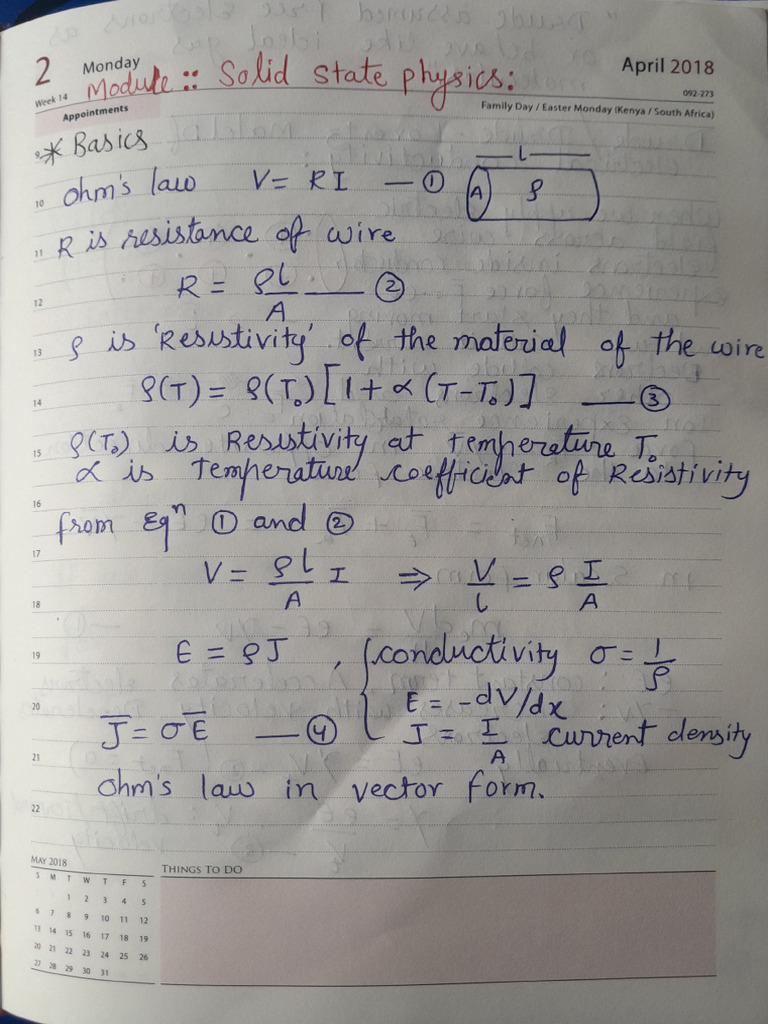 2 Monday April 2018
Week 14 092-273
Module :: Solid State physics:
Appointments Family Day / Easter Monday (Kenya / South Africa)
9 * Basics
l
10 Ohm's law V = RI — ① A ρ
11 R is resistance of wire
12 R = ρl/A — ②
13 ρ is 'Resistivity' of the material of the wire
14 ρ(T) = ρ(T₀) [1 + α (T-T₀)] — ③
15 ρ(T₀) is Resistivity at temperature T₀
α is Temperature coefficient of Resistivity
16
from Eqⁿ ① and ②
17 V = ρl/A I ⇒ V/l = ρ I/A
18
19 E = ρJ , { conductivity σ = 1/ρ
20 E = -dV/dx
J̅ = σE̅ — ④ J = I/A current density
21
Ohm's law in vector form.
22
MAY 2018 THINGS TO DO
S M T W T F S
1 2 3 4 5
6 7 8 9 10 11 12
13 14 15 16 17 18 19
20 21 22 23 24 25 26
27 28 29 30 31